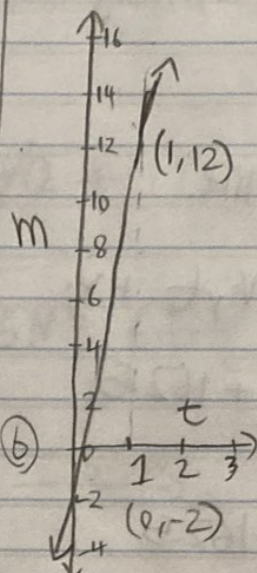 16
14
12
(1,12)
10
m
8
6
4
2
t
6
0
1 2 3
-2
(0,-2)
-4